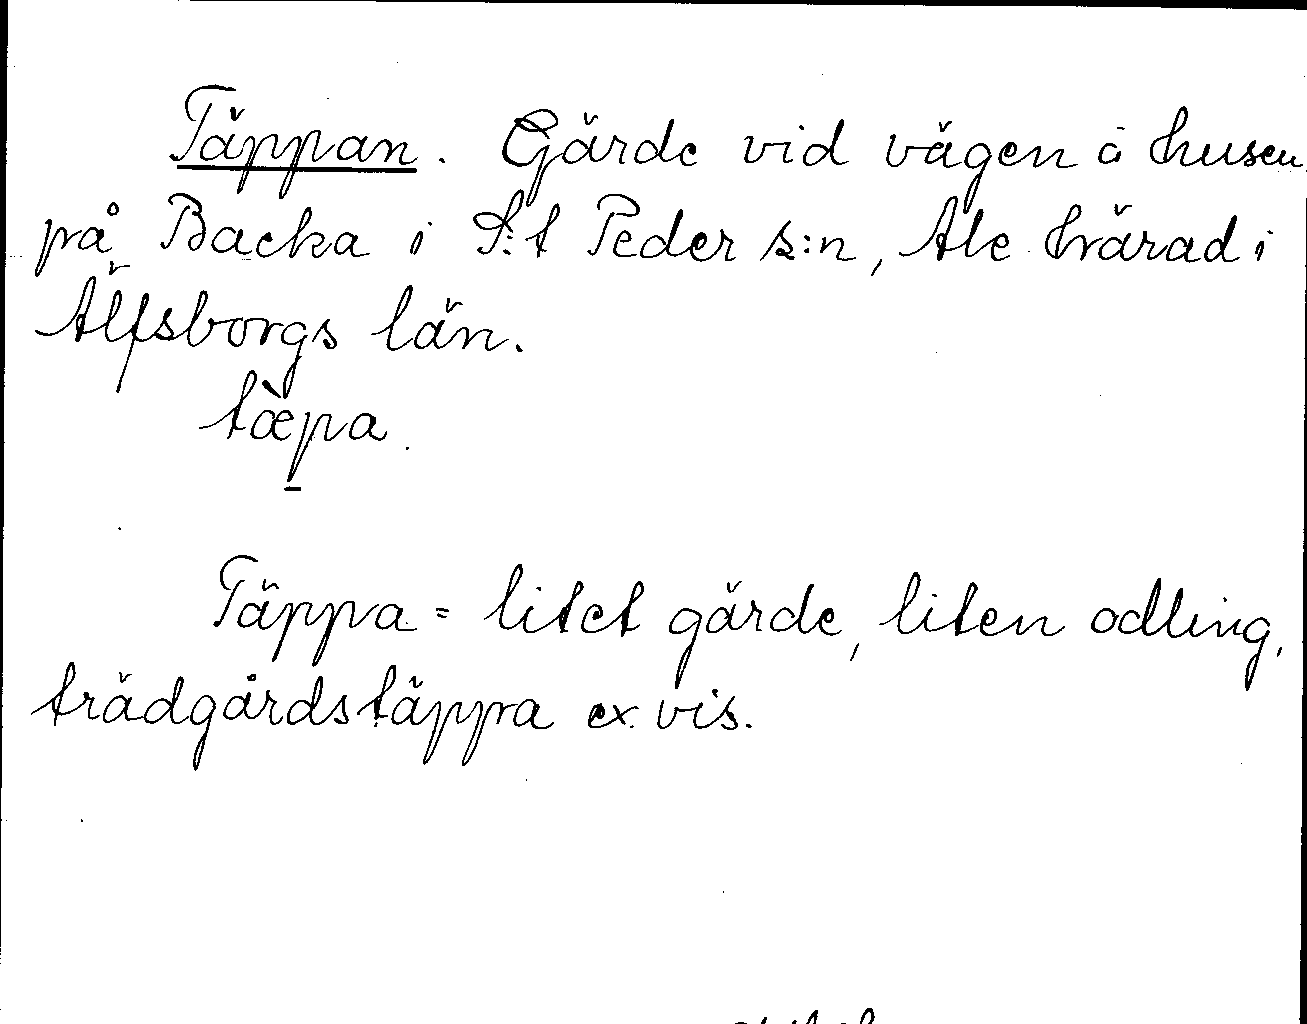 Täppan. Gärde vid vägen å husen
på Backa i S:t Peder s:n, Ale härad i
Älfsborgs län.
tæ̀p̱a.
Täppa = litet gärde, liten odling,
trädgårdstäppa ex. vis.